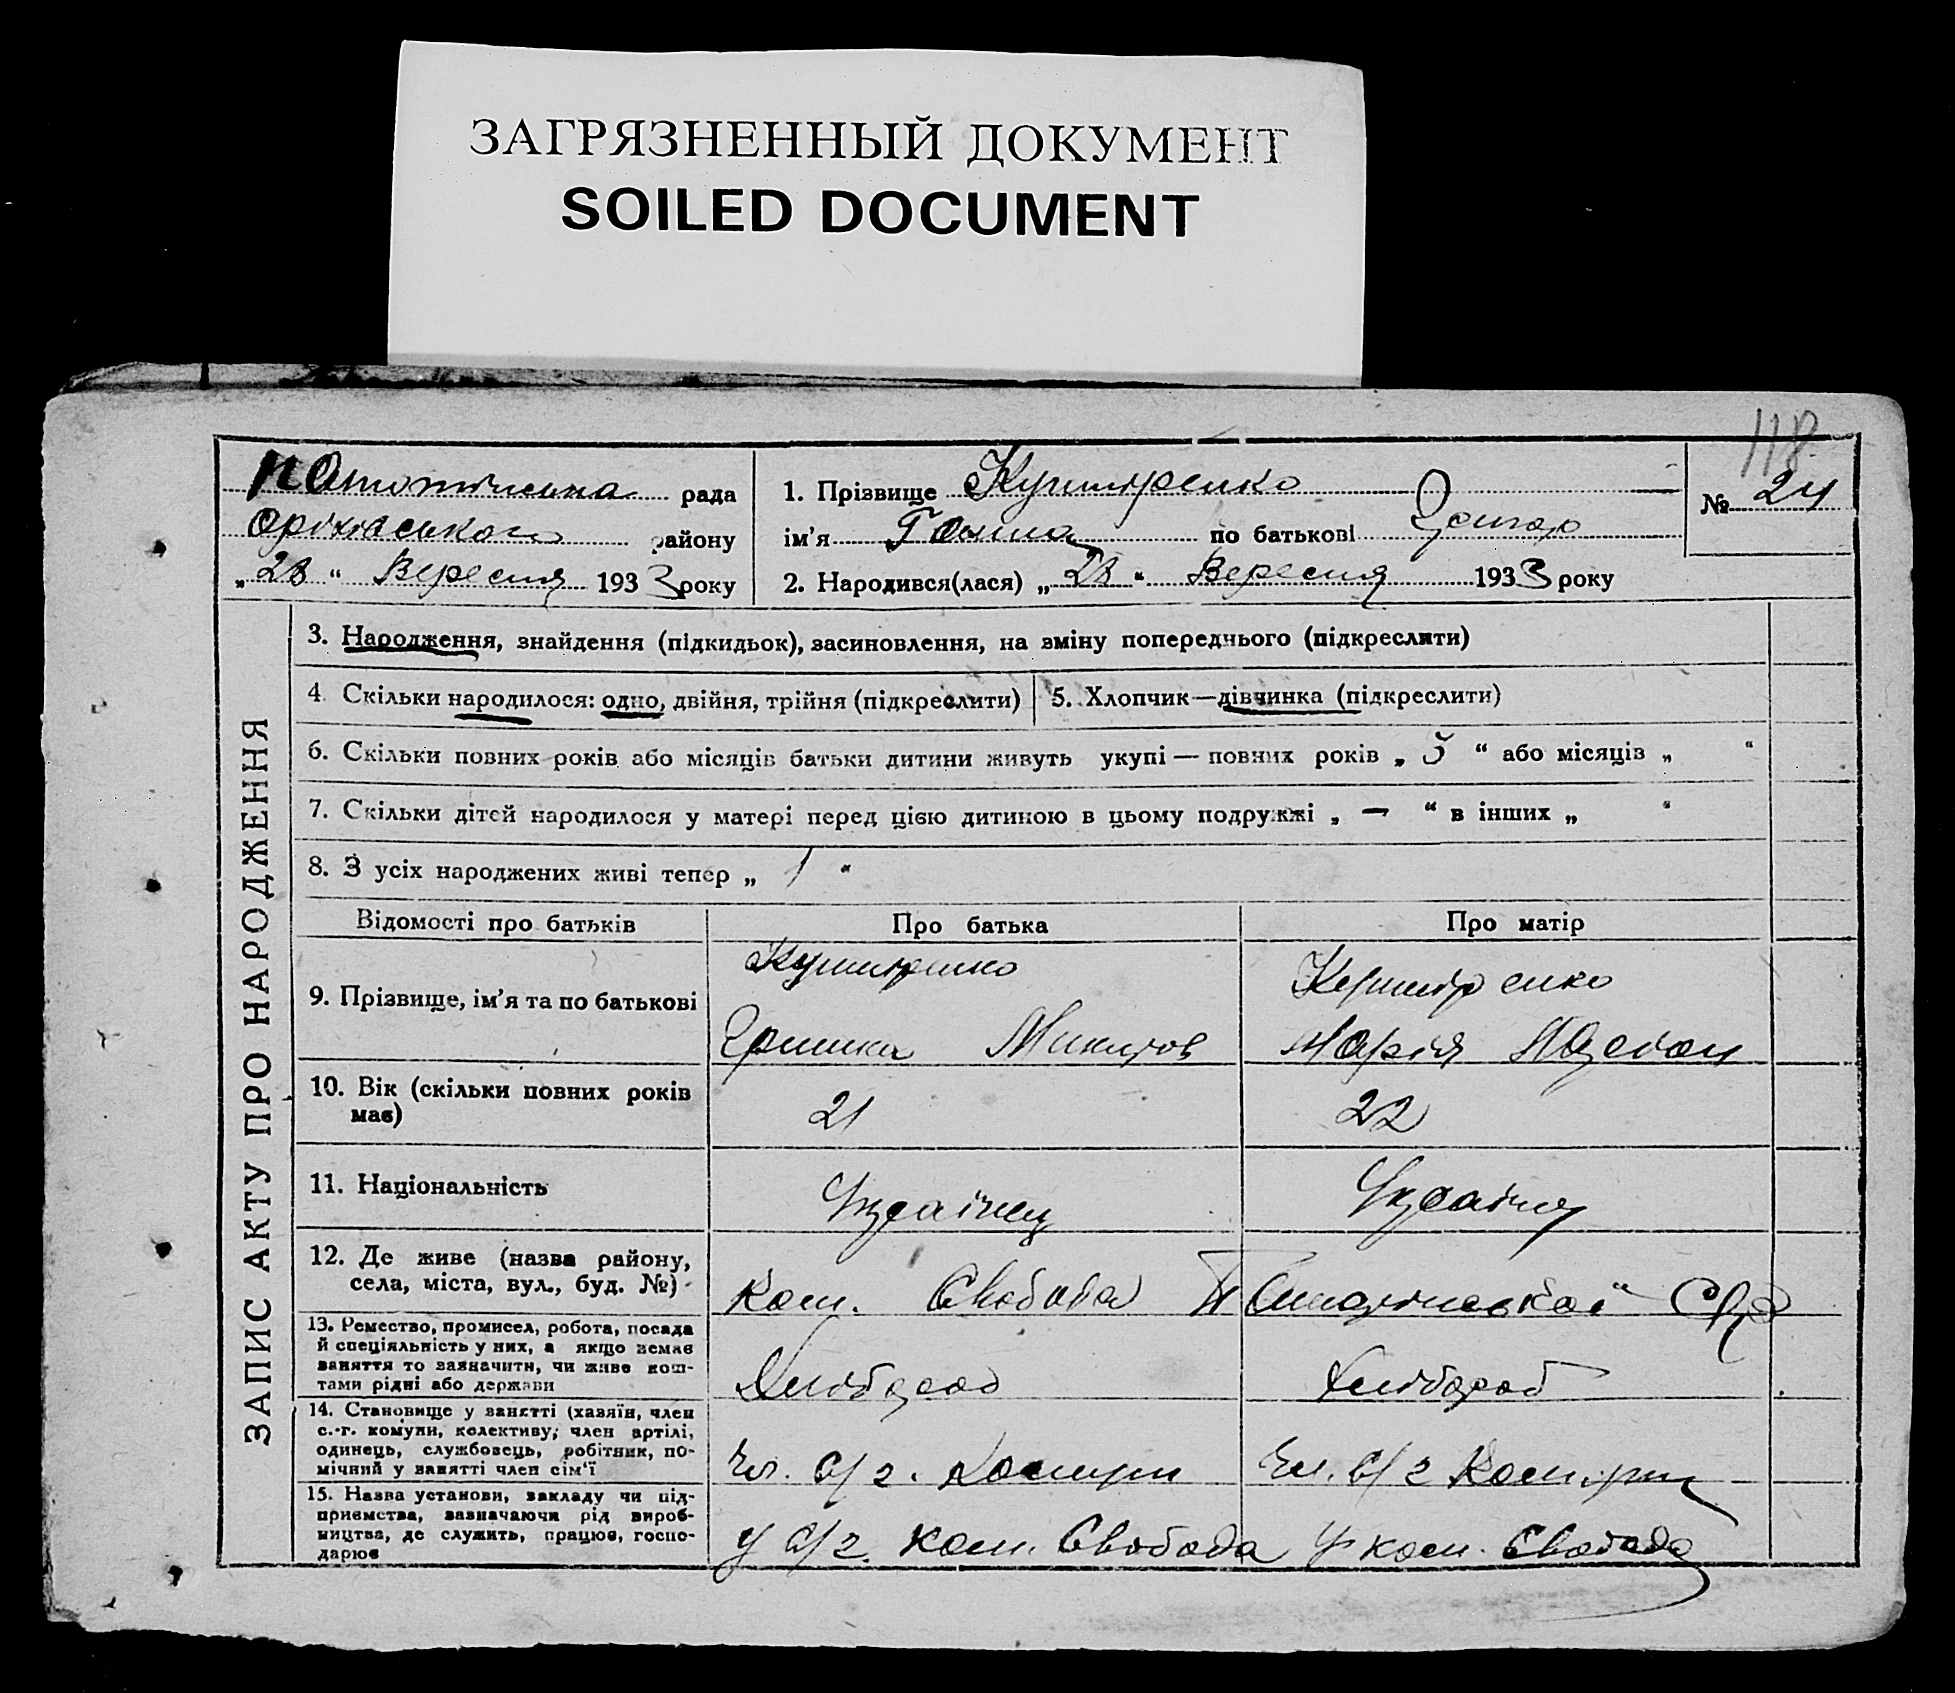 ЗАГРЯЗНЕННЫЙ ДОКУМЕНТ
SOILED DOCUMENT
118
рада
району
„ 28 “ Вересня 1933 року
1. Прізвище Кушніренко
ім'я Ганна по батькові
№ 24
2. Народився(лася) „ 28 “ Вересня 1933 року
ЗАПИС АКТУ ПРО НАРОДЖЕННЯ
3. Народження, знайдення (підкидьок), засиновлення, на зміну попереднього (підкреслити)
4. Скільки народилося: одно, двійня, трійня (підкреслити)
5. Хлопчик—дівчинка (підкреслити)
6. Скільки повних років або місяців батьки дитини живуть укупі — повних років „ “ або місяців „ “
7. Скільки дітей народилося у матері перед цією дитиною в цьому подружжі „ — “ в інших „ “
8. З усіх народжених живі тепер „ 1 “
Відомості про батьків
Про батька
Про матір
9. Прізвище, ім'я та по батькові
Кушніренко
Микитов
Кушніренко
Марія
10. Вік (скільки повних років
має)
21
22
11. Національність
Українец
Україн
12. Де живе (назва району,
села, міста, вул., буд. №)
Ком. Свобода
13. Ремество, промисел, робота, посада
й спеціяльність у них, а якщо немає
заняття то зазначити, чи живе кош-
тами рідні або держави
Хлібороб
Хлібороб
14. Становище у занятті (хазяїн, член
с.-г. комуни, колективу, член артілі,
одинець, службовець, робітник, по-
мічний у занятті член сім'ї
Чл. с/г. Комуни
Чл. с/г Комуни
15. Назва установи, закладу чи під-
приємства, зазначаючи рід вироб-
ництва, де служить, працює, госпо-
дарює
у с/г. ком. Свобода
у ком. Свобода